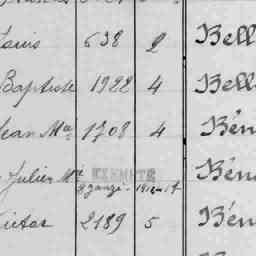 Louis 638 2 Bell
Baptiste 1922 4 Bell
Jean Mie 1708 4 Bén
Julien Mie EXEMPTE 1914-17 Bén
Victor 2189 5 Bén